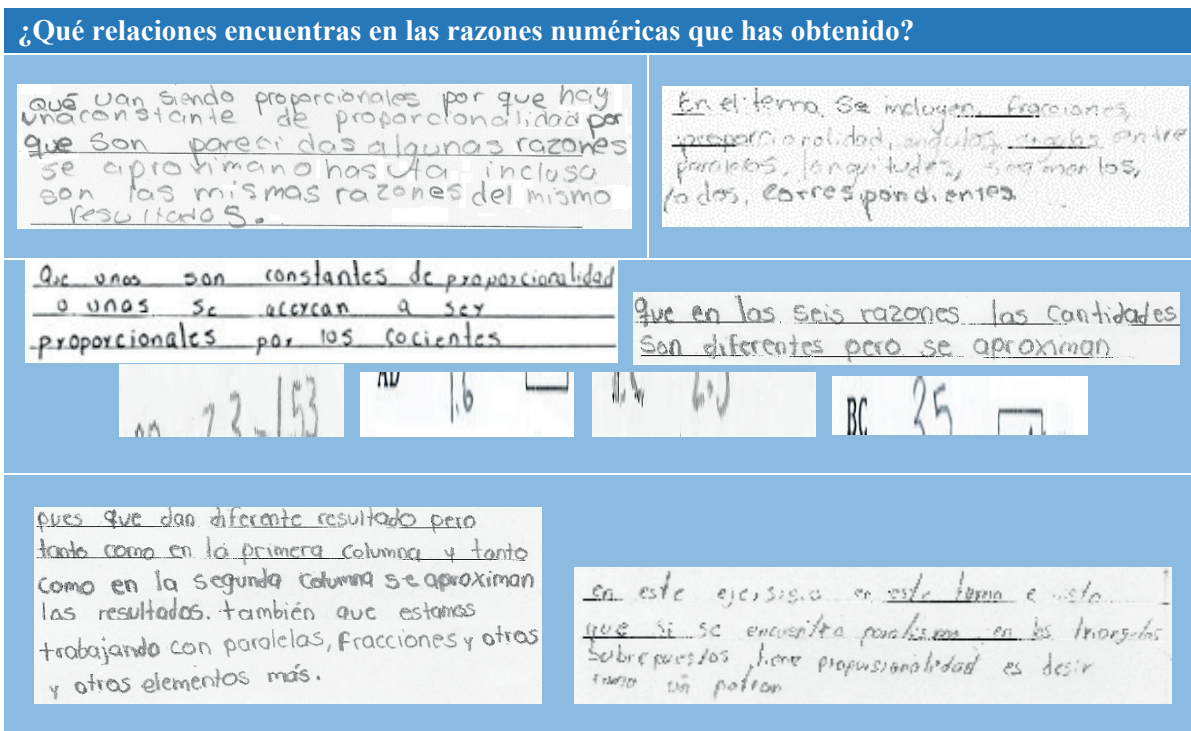 ¿Qué relaciones encuentras en las razones numéricas que has obtenido?
qué van siendo proporcionales por que hay
una constante de proporcionalidad por
que son parecidas algunas razones
se aproximan o hasta incluso
son las mismas razones del mismo
resultados.
En el tema se incluyen, fracciones,
proporcionalidad, angulos, entre
paralelas, longuitudes, segmentos,
lados, correspondientes
Que unas son constantes de proporcionalidad
o unas se acercan a ser
proporcionales por los cocientes
que en las seis razones las cantidades
son diferentes pero se aproximan
2.3 1.53
AD 1.6
BC 35
pues que dan diferente resultado pero
tanto como en la primera columna y tanto
como en la segunda columna se aproximan
las resultados. también que estamos
trabajando con paralelas, fracciones y otros
y otros elementos más.
en este ejersisio en este tema e visto
que si se encuentra paralismo en los triangulos
sobrepuestos tiene propusionalidad es desir
como un patron